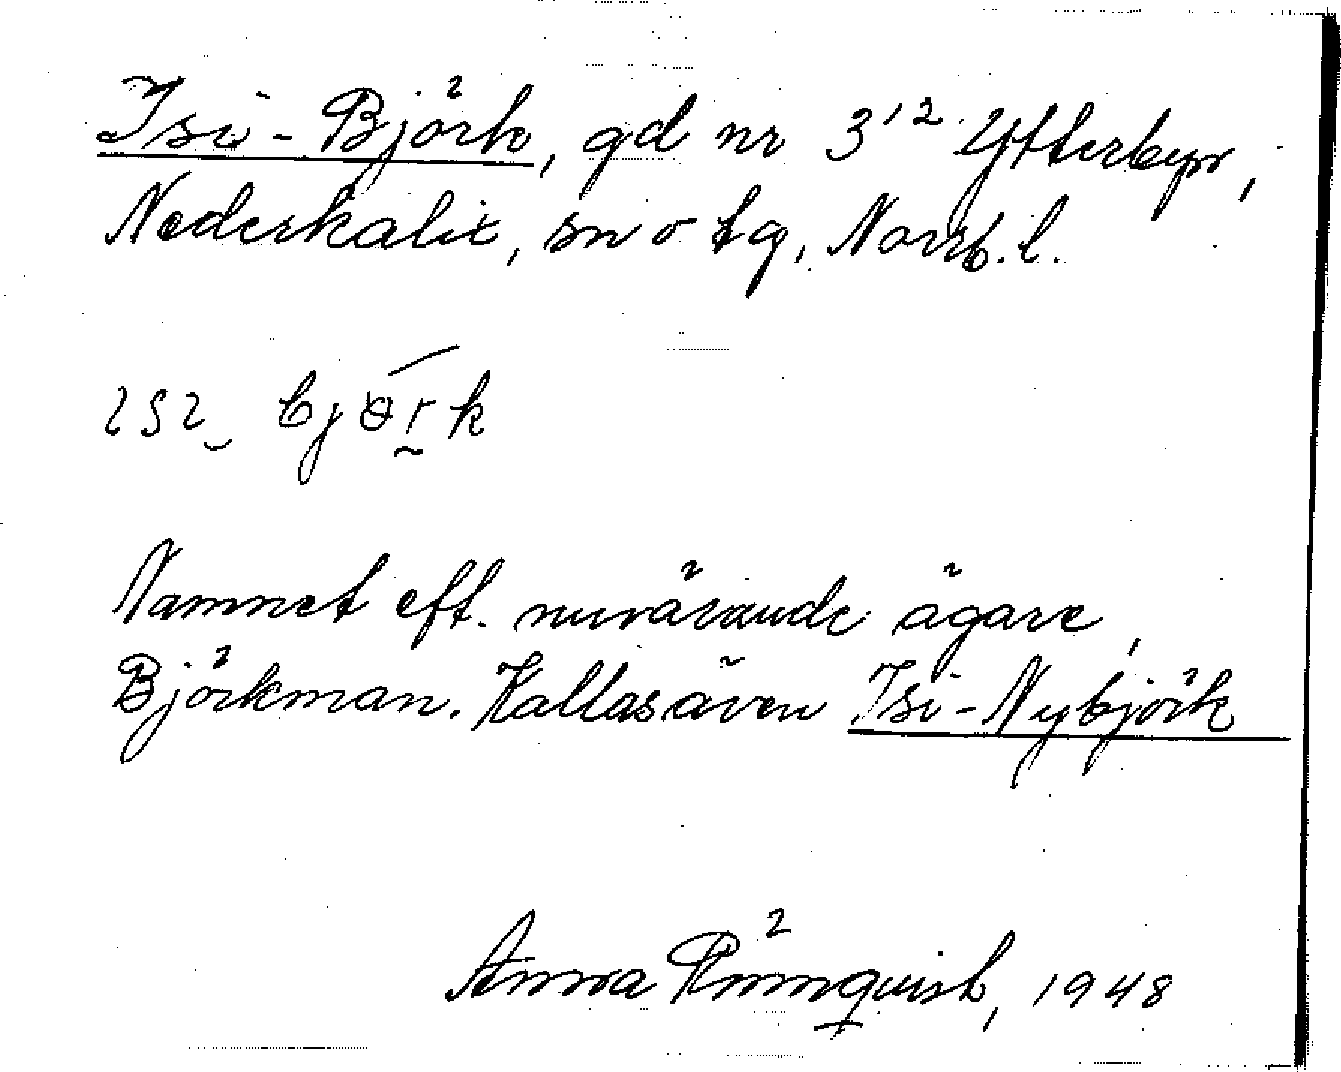 Isi-Björk, gd nr 3¹² Ytterbyn,
Nederkalix, sn o tg, Norrb. l.
Namnet eft. nuvärande ägare,
Björkman. Kallas även Isi-Nybjörk
Anna Rönnquist, 1948